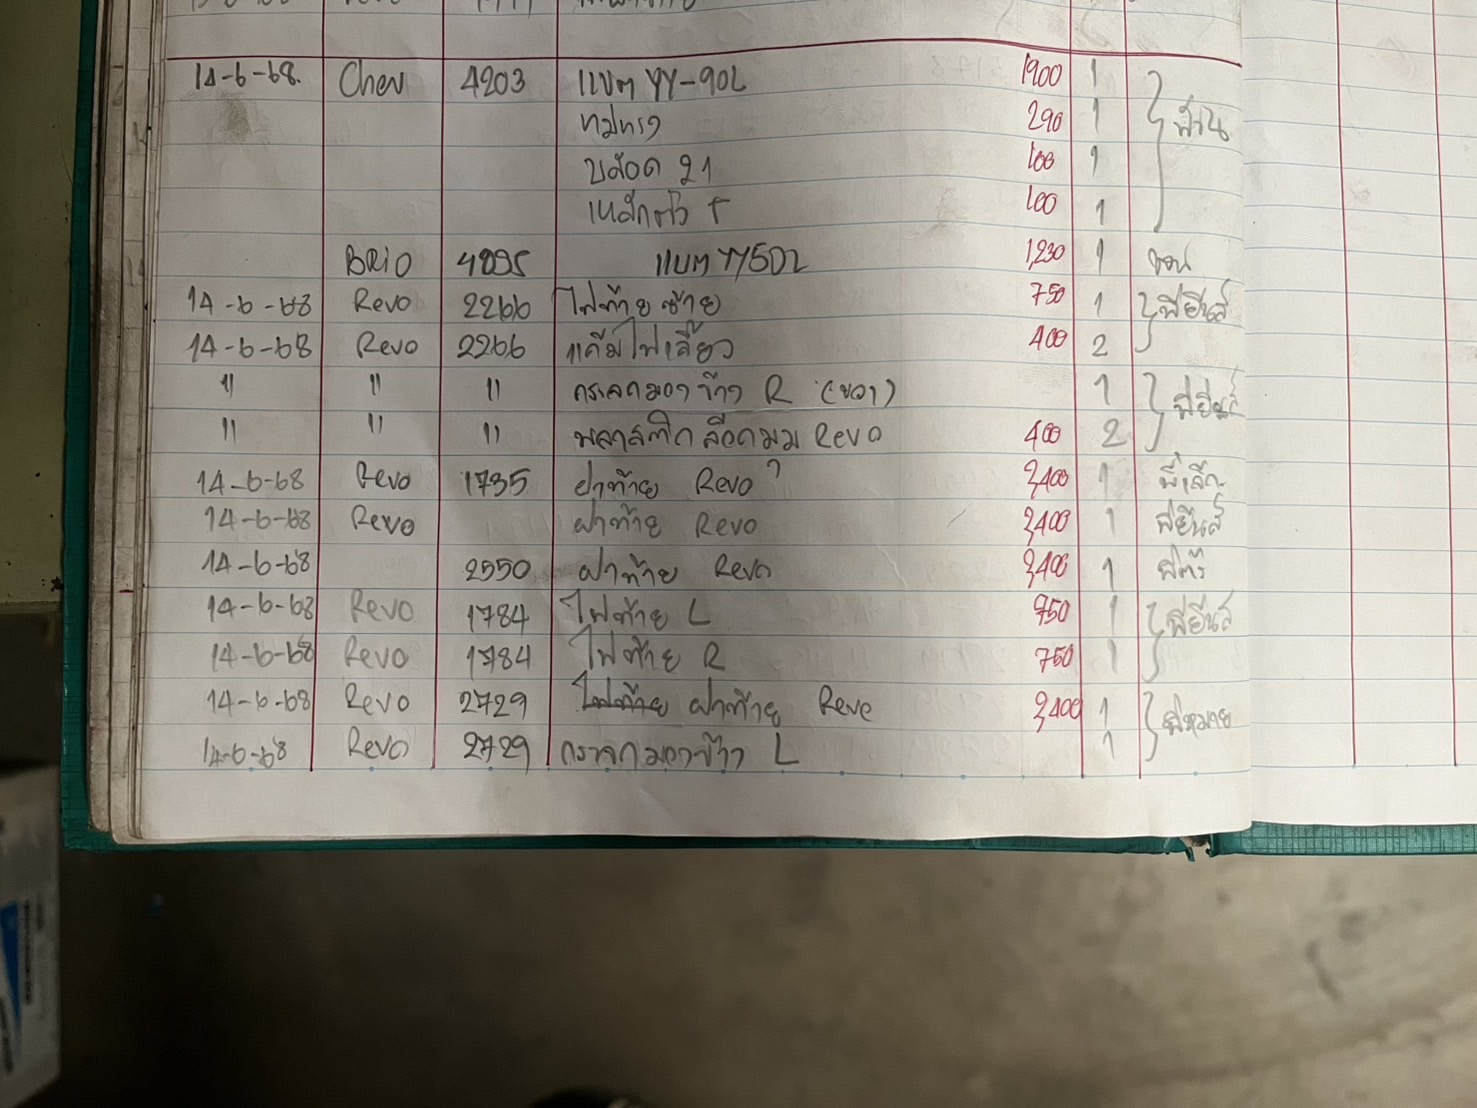 14-6-68. Chev 4203 แบต YY-90L 1900 1
290 1
ปลอด 21 100 1
100 1
BRIO 4295 แบต YY50L 1,230 1
14-6-68 Revo 2266 ไฟท้าย ซ้าย 750 1 พี่ยีนส์
14-6-68 Revo 2266 แค้มไฟเลี้ยว 400 2
" " " กระจกมองข้าง R (ขวา) 1 พี่ยีนส์
" " " พลาสติก ล๊อคมุม Revo 400 2
14-6-68 Revo 1735 ฝาท้าย Revo 2,400 1 พี่เล็ก
14-6-68 Revo ฝาท้าย Revo 2,400 1 พี่ยีนส์
14-6-68 2550 ฝาท้าย Revo 2,400 1
14-6-68 Revo 1784 ไฟท้าย L 750 1 พี่ยีนส์
14-6-68 Revo 1784 ไฟท้าย R 750 1
14-6-68 Revo 2729 ไฟท้าย ฝาท้าย Revo 2,400 1 พี่หมาย
14-6-68 Revo 2729 กระจกมองข้าง L 1